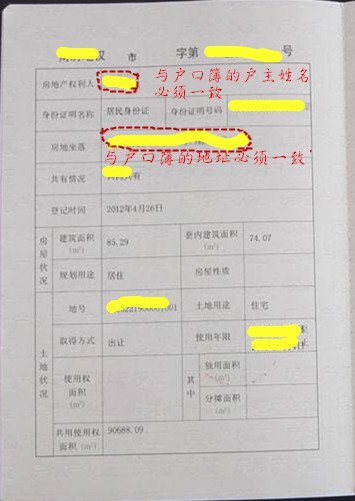 汉 市 字第 号
房地产权利人
与户口簿的户主姓名
必须一致
身份证明名称 居民身份证 身份证明号码
房地坐落
与户口簿的地址必须一致
共有情况 共同共有
登记时间 2012年4月26日
房屋状况 建筑面积(m²) 85.29 套内建筑面积(m²) 74.07
规划用途 居住 房屋性质
土地状况 地号 001 土地用途 住宅
取得方式 出让 使用年限
使用权面积(m²) 其中 独用面积(m²)
分摊面积(m²)
共用使用权面积(m²) 90688.09